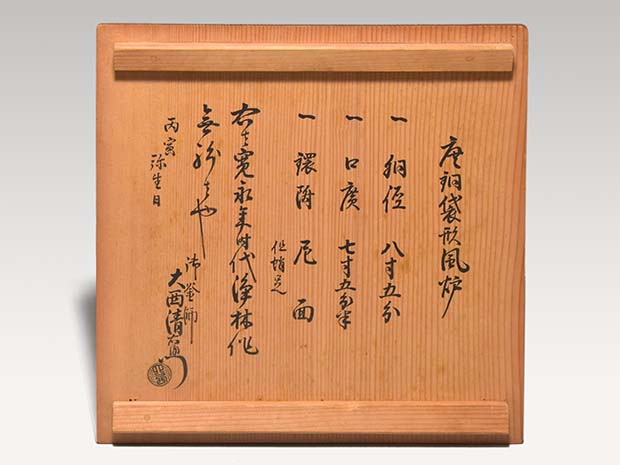 唐銅袋形風炉
一 胴径 八寸五分
一 口廣 七寸五分半
一 鐶附 尼面
但蛸足
右者寛永年時代浄林作
無紛者也
丙寅 弥生日
御釜師
大西清右衛門